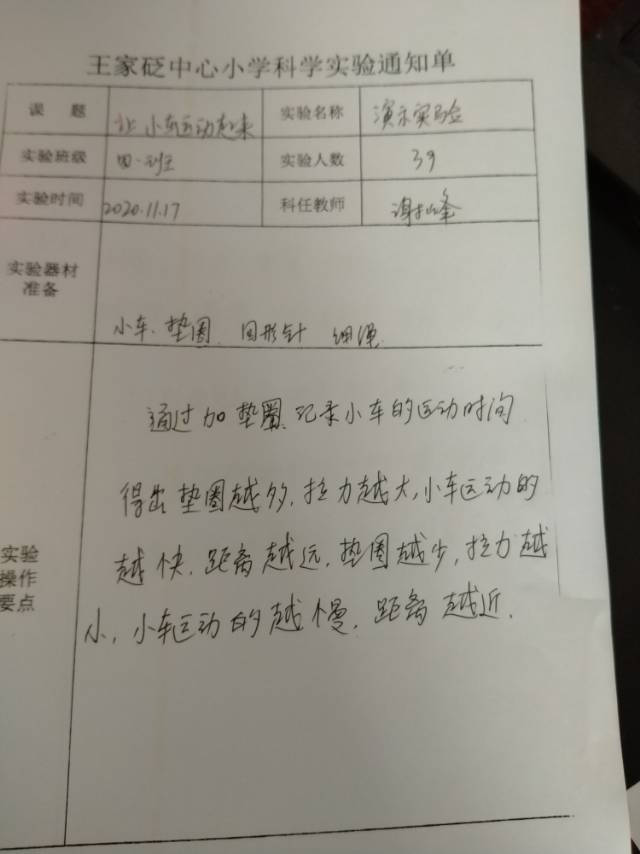 王家砭中心小学科学实验通知单
课 题 让小车运动起来 实验名称 演示实验
实验班级 四一班 实验人数 39
实验时间 2020.11.17 科任教师 谢 峰
实验器材
准备
小车、垫圈 回形针 细绳
通过加垫圈、记录小车的运动时间
得出垫圈越多,拉力越大,小车运动的
越快,距离越远,垫圈越少,拉力越
小,小车运动的越慢,距离越近.
实验
操作
要点